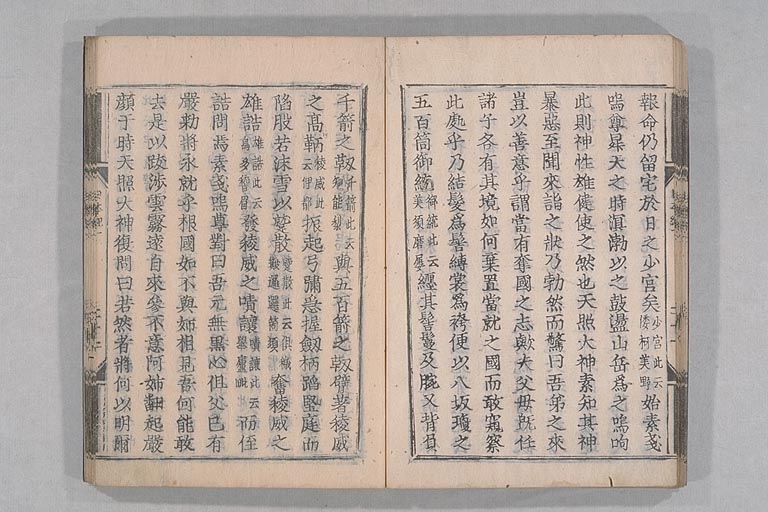 報命仍留宅於日之少宮矣少宮此云倭柯美野始素戔
嗚尊昇天之時溟渤以之鼓盪山岳為之鳴呴
此則神性雄健使之然也天照大神素知其神
暴惡至聞來詣之狀乃勃然而驚曰吾弟之來
豈以善意乎謂當有奪國之志歟夫父母既任
諸子各有其境如何棄置當就之國而敢窺窬
此處乎乃結髮為髻縛裳為袴便以八坂瓊之
五百箇御統御統此云美須磨屢纏其髻鬘及腕又背負
千箭之靫千箭此云知能梨與五百箭之靫臂著稜威
之高鞆稜威此云伊都振起弓彇急握劔柄蹈堅庭而
陷股若沫雪以蹴散蹴散此云俱穢簸邏邏箇須奮稜威之
雄誥雄誥此云烏多稽眉發稜威之嘖讓嘖讓此云舉廬毗而俓
詰問焉素戔嗚尊對曰吾元無黑心但父已有
嚴勅將永就乎根國如不與姊相見吾何能敢
去是以跋涉雲霧遠自來參不意阿姊翻起嚴
顏于時天照大神復問曰若然者將何以明爾